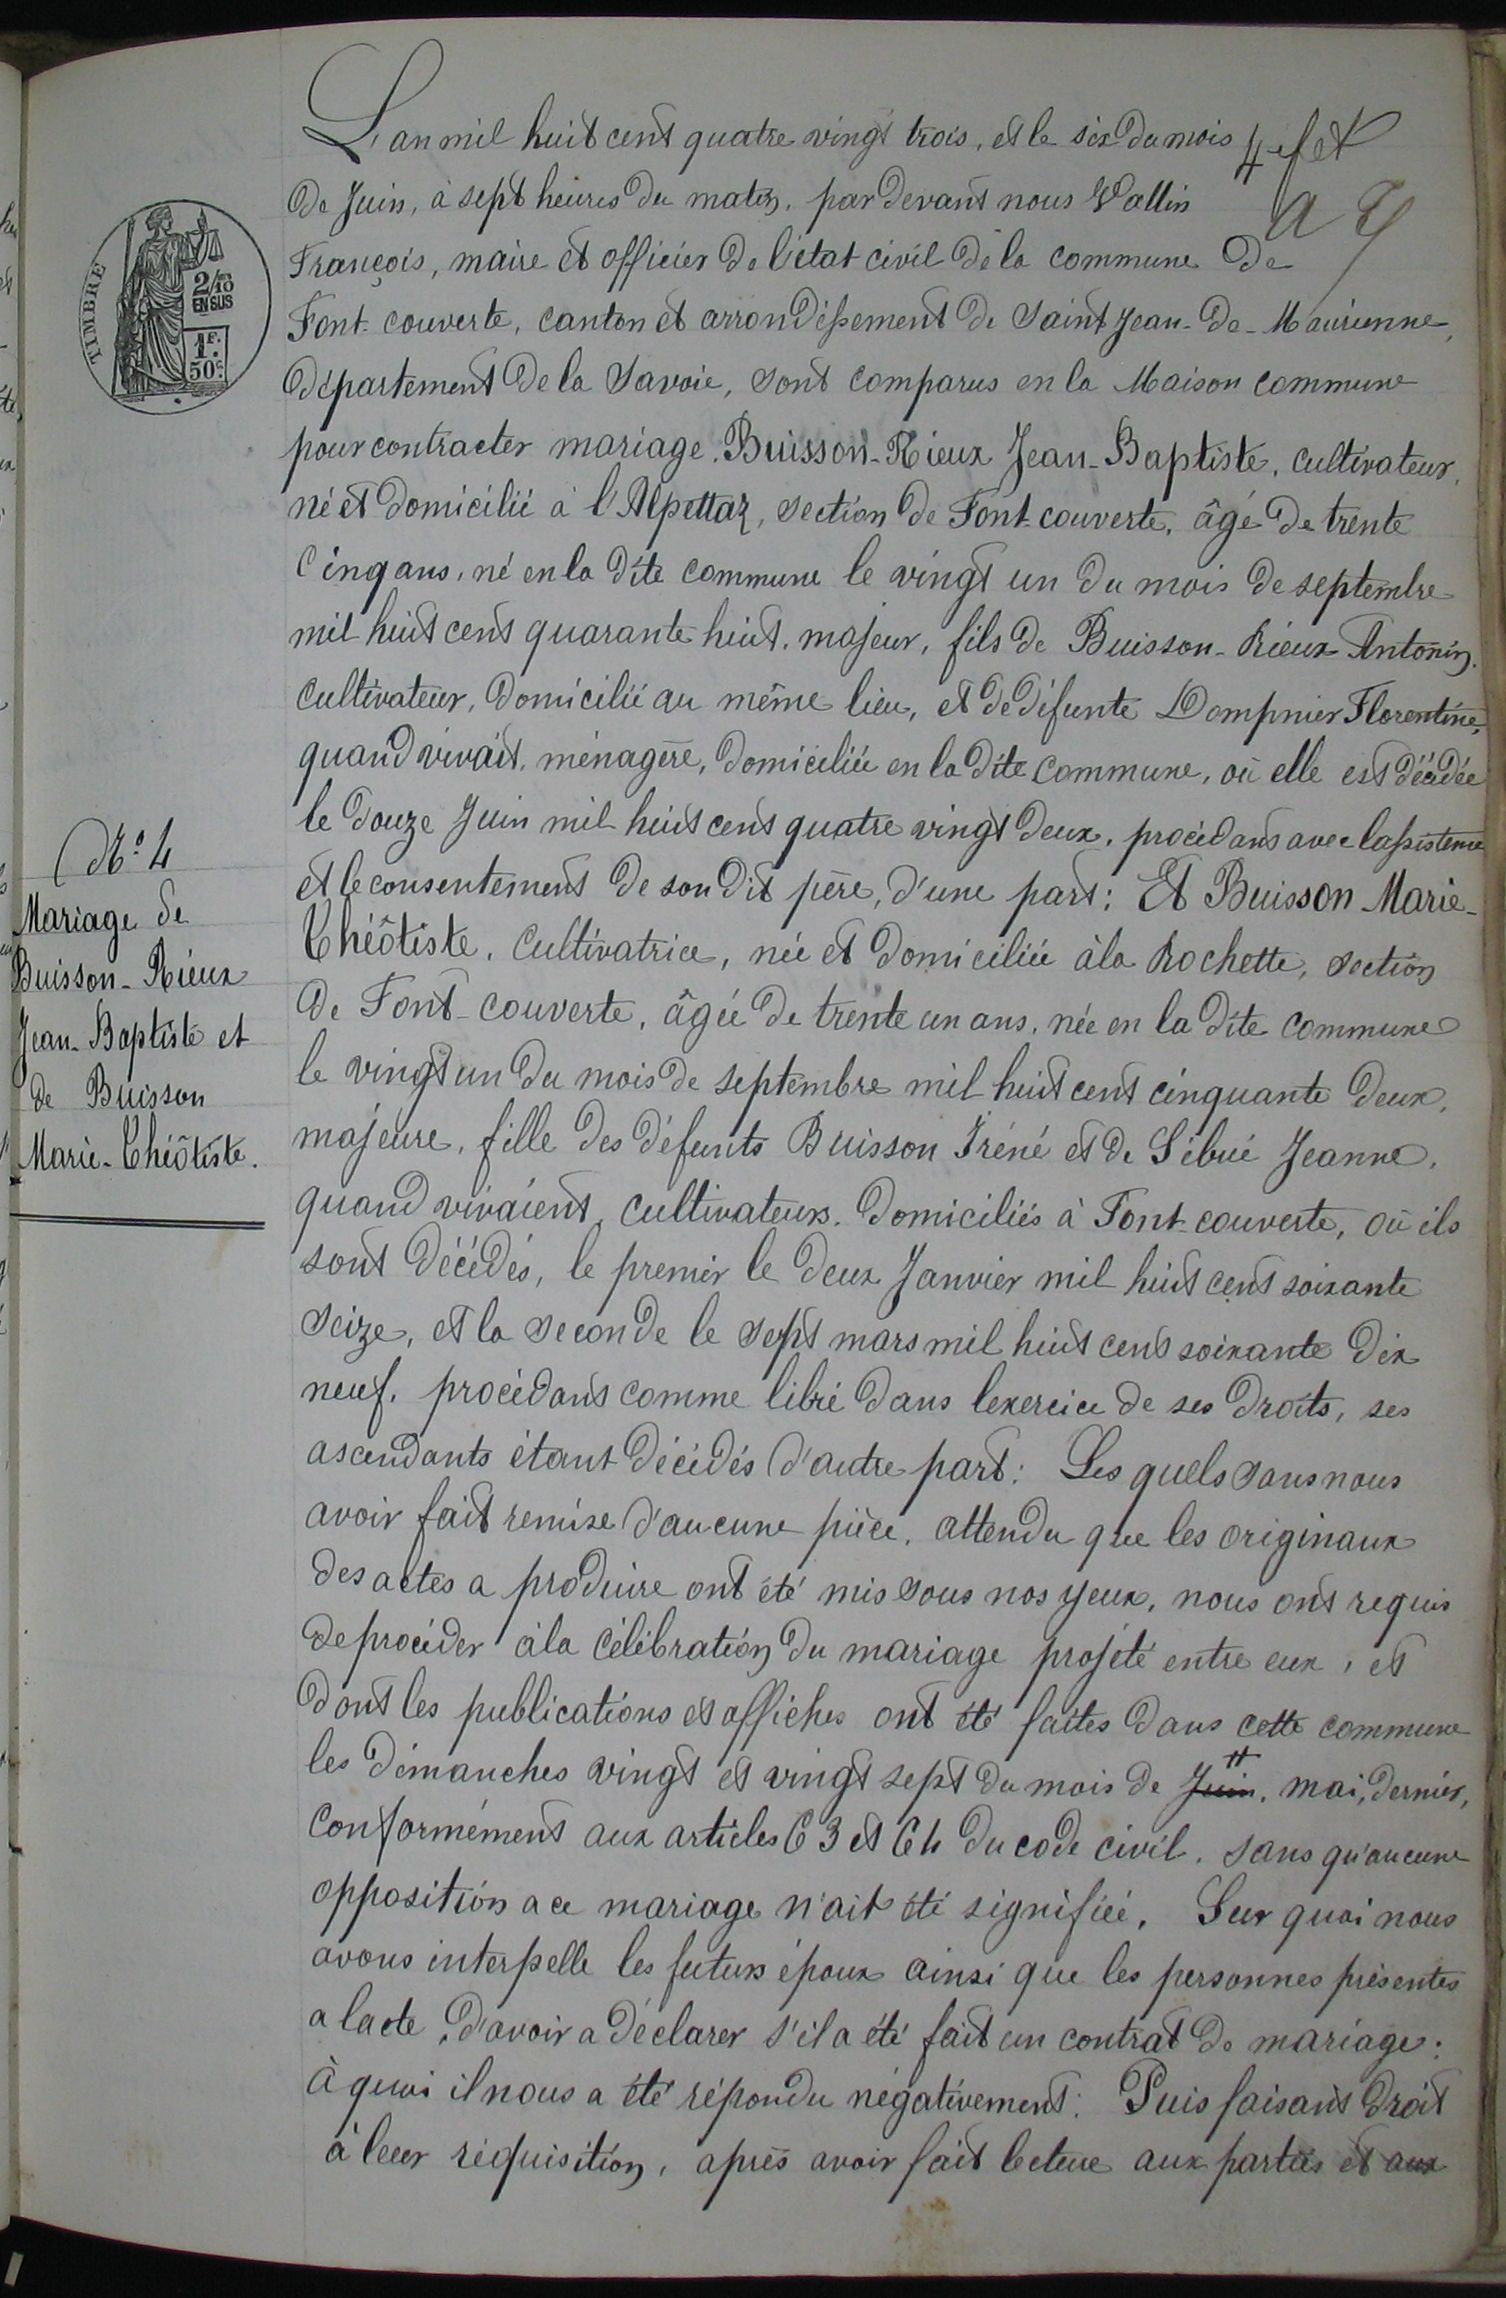 L'an mil huit cent quatre vingt trois, et le six du mois
de Juin, à sept heures du matin, par devant nous Vallin
François, maire et officier de l'état civil de la commune de
Font-couverte, canton et arrondissement de Saint Jean-de-Maurienne,
département de la Savoie, sont comparus en la Maison commune
pour contracter mariage. Buisson-Rieux Jean-Baptiste, cultivateur,
né et domicilié à l'Alpettaz, section de Font-couverte, âgé de trente
cinq ans, né en la dite commune le vingt un du mois de septembre
mil huit cent quarante huit, majeur, fils de Buisson-Rieux Antonin,
cultivateur, domicilié au même lieu, et de défunte Dompnier Florentine,
quand vivait, ménagère, domiciliée en la dite commune, où elle est décédée
le douze Juin mil huit cent quatre vingt deux, procédant avec l'assistence
et le consentement de son dit père, d'une part; Et Buisson Marie-
Théôtiste, cultivatrice, née et domiciliée à la Rochette, section
de Font-couverte, âgée de trente un ans, née en la dite commune
le vingt un du mois de septembre mil huit cent cinquante deux,
majeure, fille des défunts Buisson Iréné et de Sibué Jeanne,
quand vivaient, cultivateurs, domiciliés à Font-couverte, où ils
sont décédés, le premier le deux Janvier mil huit cent soixante
seize, et la seconde le sept mars mil huit cent soixante dix
neuf, procédant comme libre dans lexercice de ses droits, ses
ascendants étant décédés d'autre part: Les quels sans nous
avoir fait remise d'aucune pièce, attendu que les originaux
des actes a produire ont été mis sous nos yeux, nous ont requis
de procéder à la célébration du mariage projeté entre eux, et
dont les publications et affiches ont été faites dans cette commune
les dimanches vingt et vingt sept du mois de Juin, mai, dernier,
conformément aux articles 63 et 64 du code civil, sans qu'aucune
opposition a ce mariage n'ait été signifiée. Sur quoi nous
avons interpelle les futurs époux ainsi que les personnes présentes
a lacte, d'avoir a déclarer s'il a été fait un contrat de mariage:
À quoi il nous a été répondu négativement: Puis faisant droit
à leur réquisition, après avoir fait lecture aux parties et aux
TIMBRE
2/10
EN SUS
1F.
50c.
N.° 4
Mariage de
Buisson-Rieux
Jean-Baptiste et
de Buisson
Marie-Théôtiste.